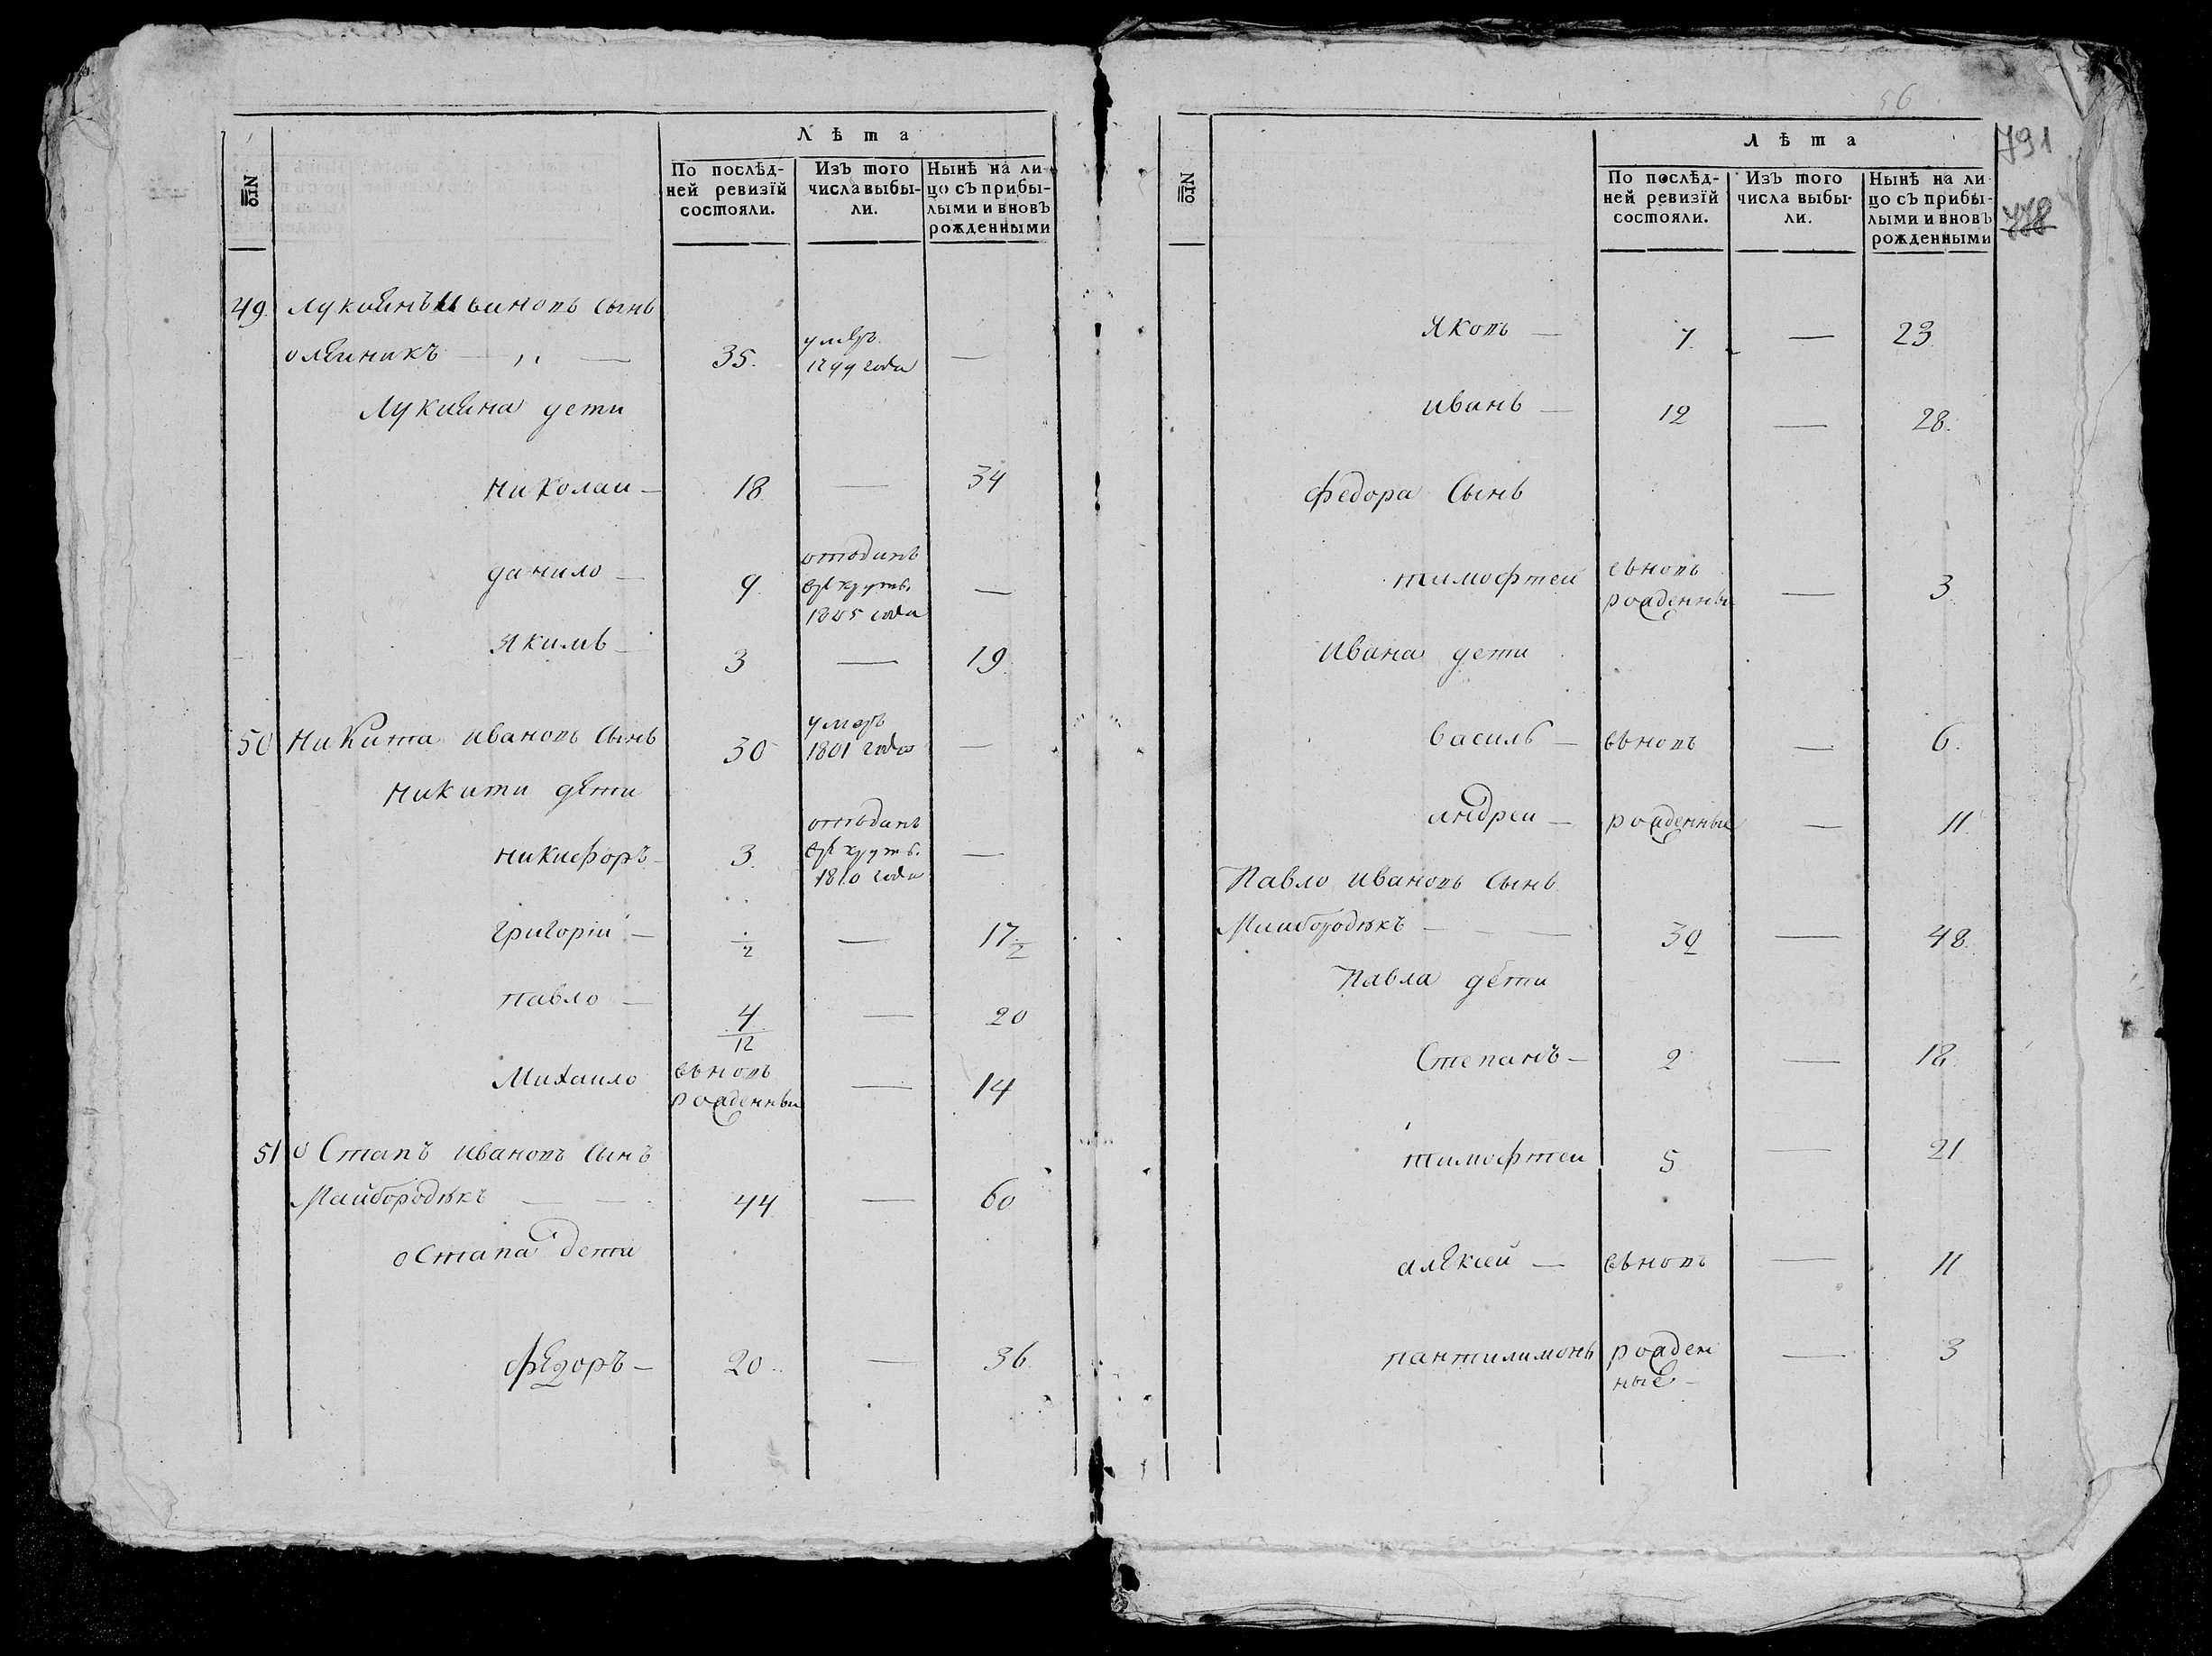 №
Лѣта
По послѣд-
ней ревизїй
состояли.
Изъ того
числа выбы-
ли.
Нынѣ на ли-
цо съ прибы-
лыми и вновь
рожденными
49 Лукиянъ Ивановъ Сынъ
олейникъ — 35. умеръ 1799 года —
Лукияна дети
Николаи — 18 — 34
данило — 9. отъданъ врекрутъ. 1805 года —
Якимъ — 3 — 19.
50 Никита ивановъ Сынъ 30 умеръ 1801 года —
Никити дети
никифоръ — 3. отъданъ врекрутъ. 1810 года —
григорій — ½ — 17½
павло — 4/12 — 20
Михаило вьновъ рожденны — 14
51 оСтапъ ивановъ Сынъ
Майбородѣкъ — 44 — 60
оСтапа дети
федоръ — 20 — 36
56
791
778
№
Лѣта
По послѣд-
ней ревизїй
состояли.
Изъ того
числа выбы-
ли.
Нынѣ на ли
цо съ прибы-
лыми и вновь
рожденными
Яковъ — 7. — 23
иванъ — 12 — 28.
Федора Сынъ
тимофтеи вьновъ рожденны — 3
Ивана дети
василь — вьновъ — 6.
Андреи — рожденные — 11.
Павло ивановъ Сынъ
Маибородѣкъ — 32 — 48.
Павла дети
Степанъ — 2 — 18
тимофтеи 5 — 21
алексей — вьновъ — 11
пантилимонъ рожден
ные — 3